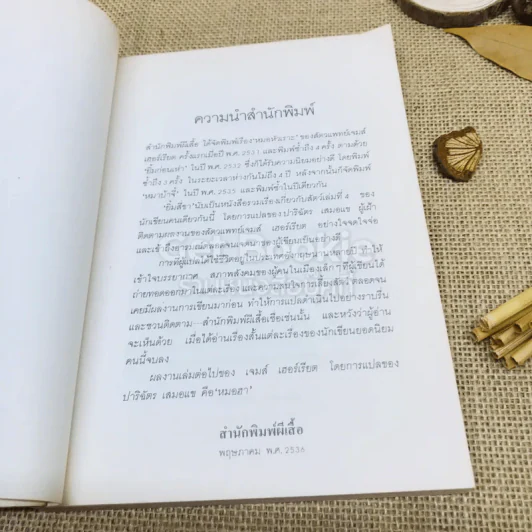 ความนำสำนักพิมพ์
สำนักพิมพ์ผีเสื้อ ได้จัดพิมพ์เรื่อง“หมอหัวเราะ”ของสัตวแพทย์เจมส์
เฮอร์เรียต ครั้งแรกเมื่อปี พ.ศ. 2531 และพิมพ์ซ้ำถึง 4 ครั้ง ตามด้วย
“ยิ้มก่อนเห่า” ในปี พ.ศ. 2532 ซึ่งก็ได้รับความนิยมอย่างดี โดยพิมพ์
ซ้ำถึง 3 ครั้ง ในระยะเวลาห่างกันไม่ถึง 4 ปี หลังจากนั้นก็จัดพิมพ์
“หมาบ้าจี้” ในปี พ.ศ. 2535 และพิมพ์ซ้ำในปีเดียวกัน
“ยิ้มสี่ขา”นับเป็นหนังสือรวมเรื่องเกี่ยวกับสัตว์เล่มที่ 4 ของ
นักเขียนคนเดียวกันนี้ โดยการแปลของ ปาริฉัตร เสมอแข ผู้เฝ้า
ติดตามผลงานของสัตวแพทย์เจมส์ เฮอร์เรียต อย่างใจจดใจจ่อ
และเข้าถึงอารมณ์ตลอดจนเจตนาของผู้เขียนเป็นอย่างดี
การที่ผู้แปลได้ใช้ชีวิตอยู่ในประเทศอังกฤษนานหลายปี ทำให้
เข้าใจบรรยากาศ สภาพสังคมของผู้คนในเมืองเล็กๆที่ผู้เขียนได้
ถ่ายทอดออกมาในแต่ละเรื่อง และความสนใจการเลี้ยงสัตว์ ตลอดจน
เคยมีผลงานการเขียนมาก่อน ทำให้การแปลดำเนินไปอย่างราบรื่น
และชวนติดตาม—สำนักพิมพ์ผีเสื้อเชื่อเช่นนั้น และหวังว่าผู้อ่าน
จะเห็นด้วย เมื่อได้อ่านเรื่องสั้นแต่ละเรื่องของนักเขียนยอดนิยม
คนนี้จบลง
ผลงานเล่มต่อไปของ เจมส์ เฮอร์เรียต โดยการแปลของ
ปาริฉัตร เสมอแข คือ“หมอฮา”
สำนักพิมพ์ผีเสื้อ
พฤษภาคม พ.ศ. 2536